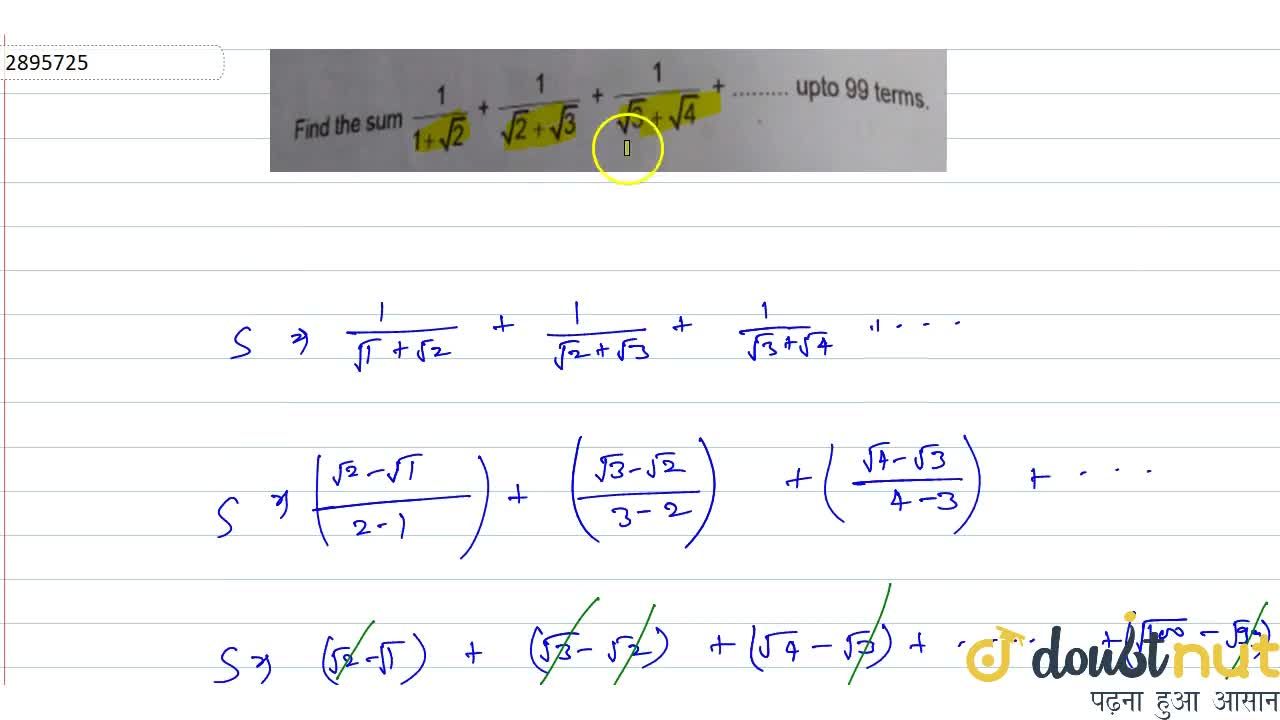 2895725
Find the sum 1/(1+√2) + 1/(√2+√3) + 1/(√3+√4) + ......... upto 99 terms.
S ⇒ 1/(√1+√2) + 1/(√2+√3) + 1/(√3+√4) ....
S ⇒ ((√2-√1)/(2-1)) + ((√3-√2)/(3-2)) + ((√4-√3)/(4-3)) + ....
S ⇒ (√2-√1) + (√3-√2) + (√4-√3) + ..... + (√100-√99)
doubtnut
पढ़ना हुआ आसान